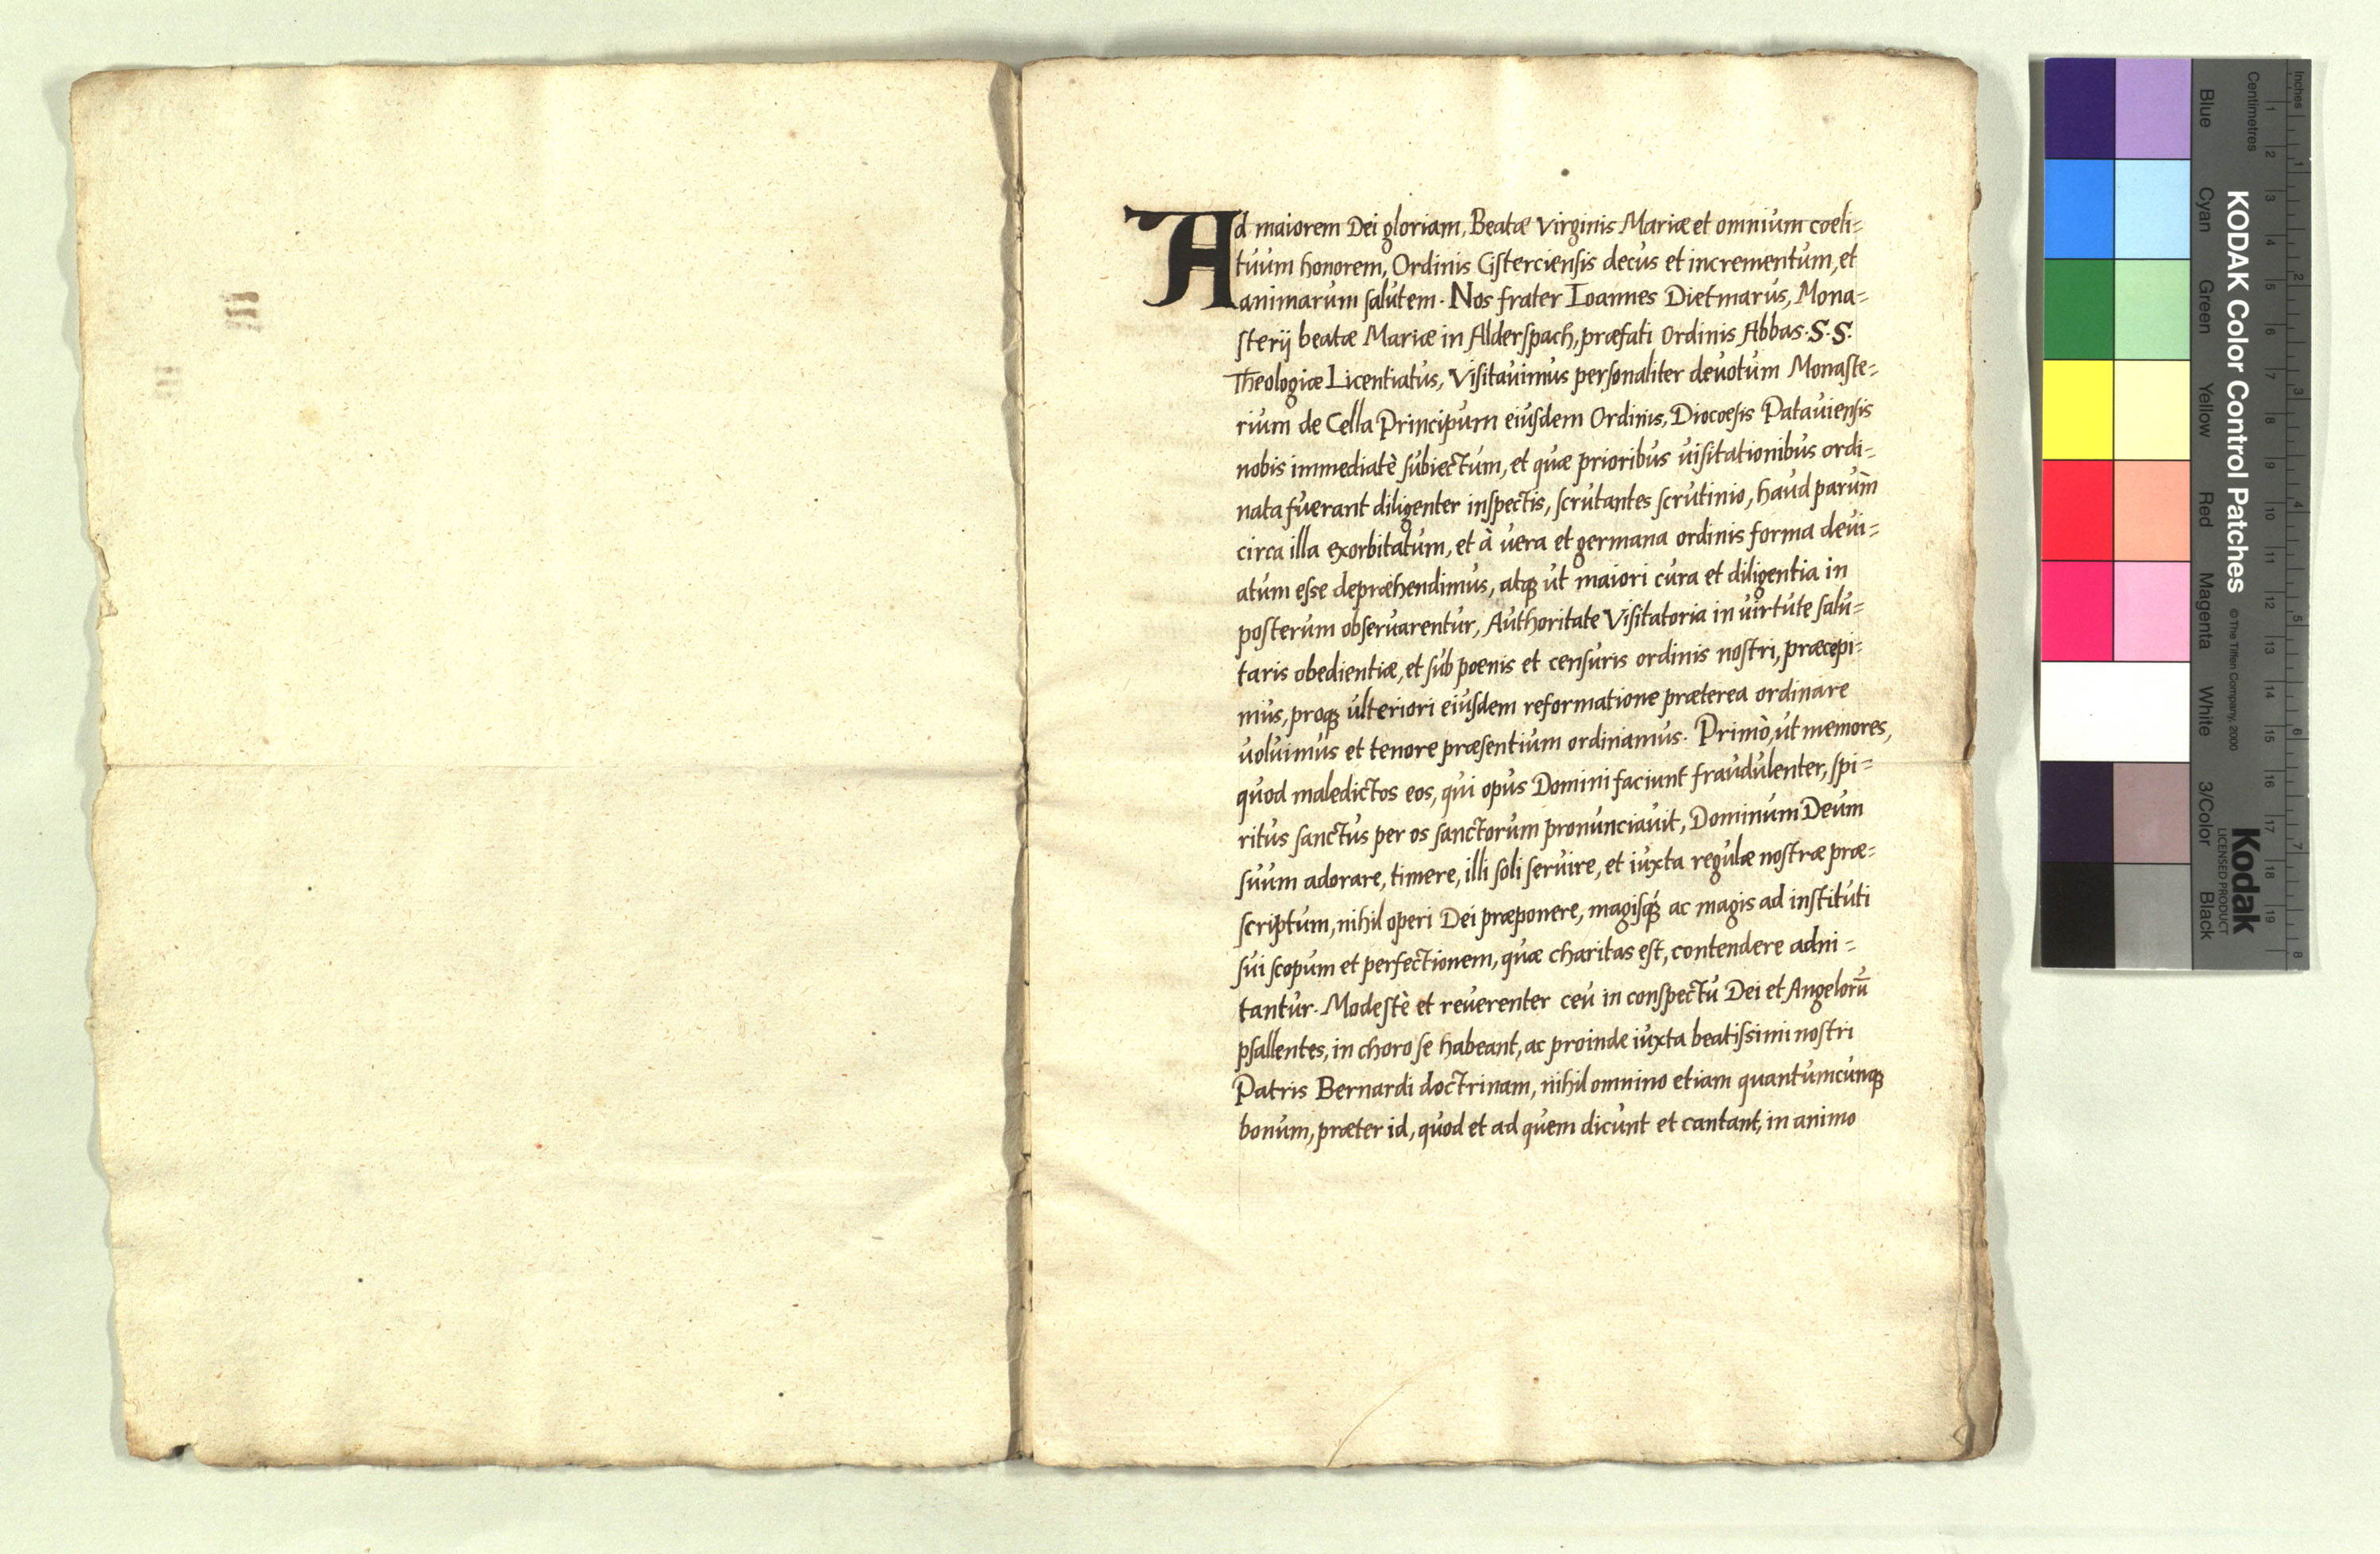 Ad maiorem Dei gloriam, Beatæ Virginis Mariæ et omnium coeli=
tuum honorem, Ordinis Cisterciensis decus et incrementum, et
animarum salutem. Nos frater Ioannes Dietmarus, Mona=
sterij beatæ Mariæ in Alderspach, præfati Ordinis Abbas. S. S.
Theologiæ Licentiatus, Visitauimus personaliter deuotum Monaste=
rium de Cella Principum eiusdem Ordinis, Dioecoesis Patauiensis
nobis immediatè subiectum, et quæ prioribus uisitationibus ordi=
nata fuerant diligenter inspectis, scrutantes scrutinio, haud parum̀
circa illa exorbitatum, et à uera et germana ordinis forma deui=
atum esse depræhendimus, atq́ ut maiori cura et diligentia in
posterum obseruarentur, Authoritate Visitatoria in uirtute salu=
taris obedientiæ, et sub poenis et censuris ordinis nostri, præcepi=
mus, proq́ ulteriori eiusdem reformatione præterea ordinare
uoluimus et tenore præsentium ordinamus. Primò, ut memores,
quod maledictos eos, qui opus Domini faciunt fraudulenter, spi=
ritus sanctus per os sanctorum pronunciauit, Dominum Deum
suum adorare, timere, illi soli seruire, et iuxta regulæ nostræ præ=
scriptum, nihil operi Dei præponere, magisq́ ac magis ad instituti
sui scopum et perfectionem, quæ charitas est, contendere adni=
tantur. Modestè et reuerenter ceu in conspectu Dei et Angelorū
psallentes, in choro se habeant, ac proinde iuxta beatissimi nostri
Patris Bernardi doctrinam, nihil omnino etiam quantumcunq́
bonum, præter id, quod et ad quem dicunt et cantant, in animo
KODAK Color Control Patches
© The Tiffen Company, 2000
Kodak
LICENSED PRODUCT
Inches 1 2 3 4 5 6 7 8
Centimetres 1 2 3 4 5 6 7 8 9 10 11 12 13 14 15 16 17 18 19
Blue Cyan Green Yellow Red Magenta White 3/Color Black